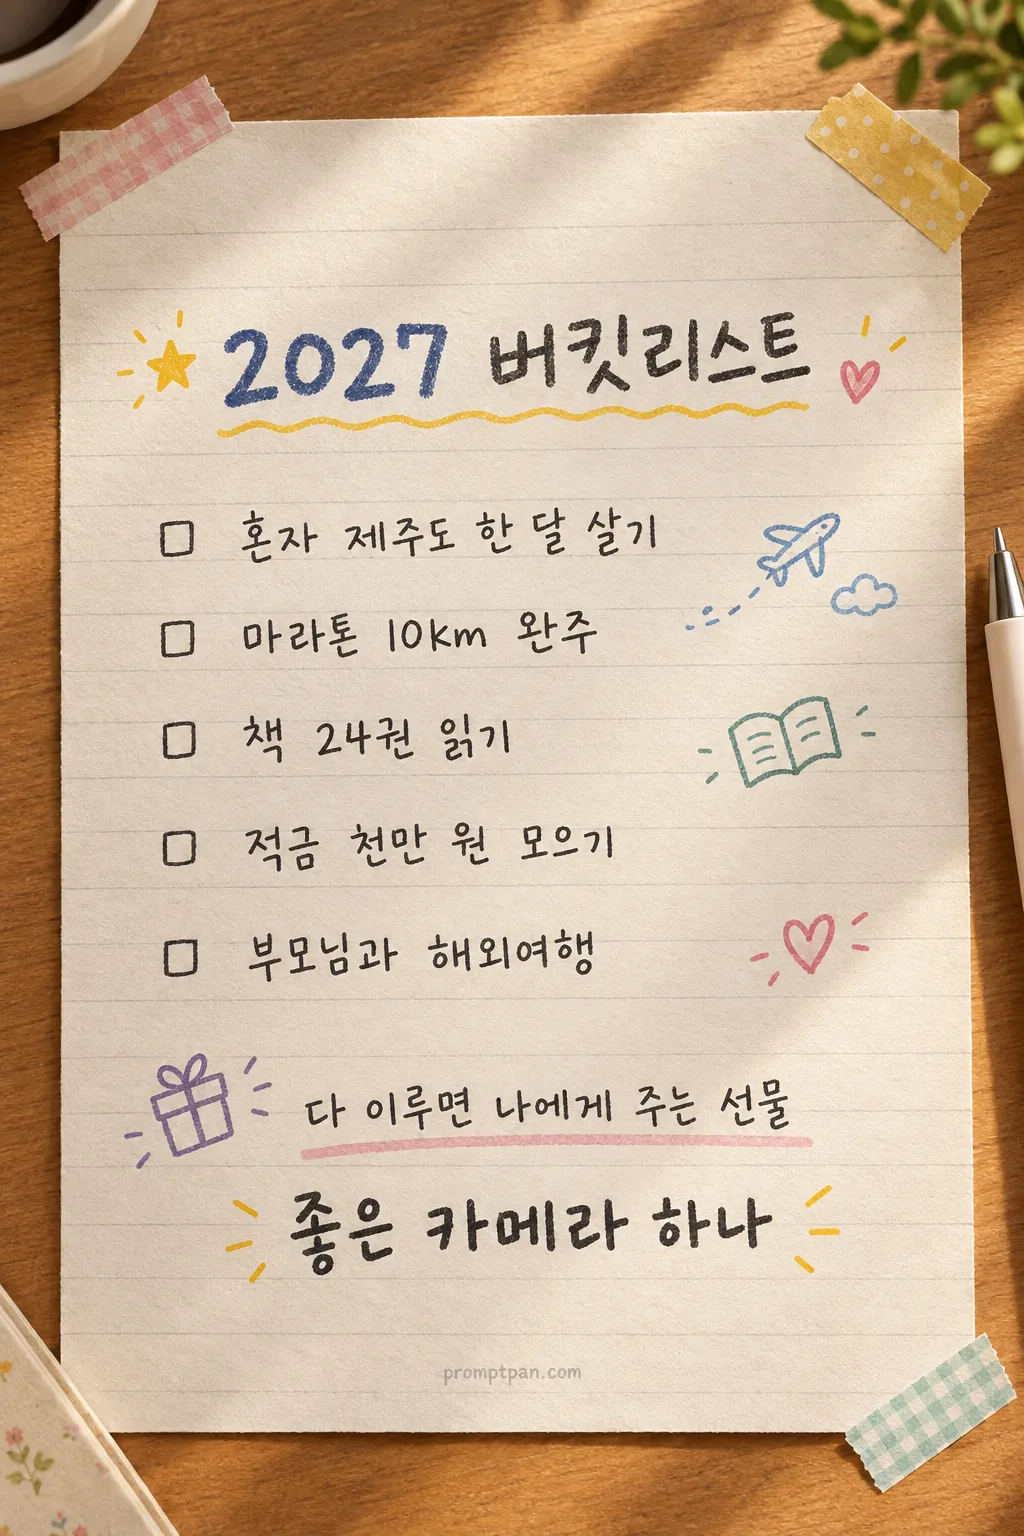 2027 버킷리스트
혼자 제주도 한 달 살기
마라톤 10km 완주
책 24권 읽기
적금 천만 원 모으기
부모님과 해외여행
다 이루면 나에게 주는 선물
좋은 카메라 하나
promptpan.com